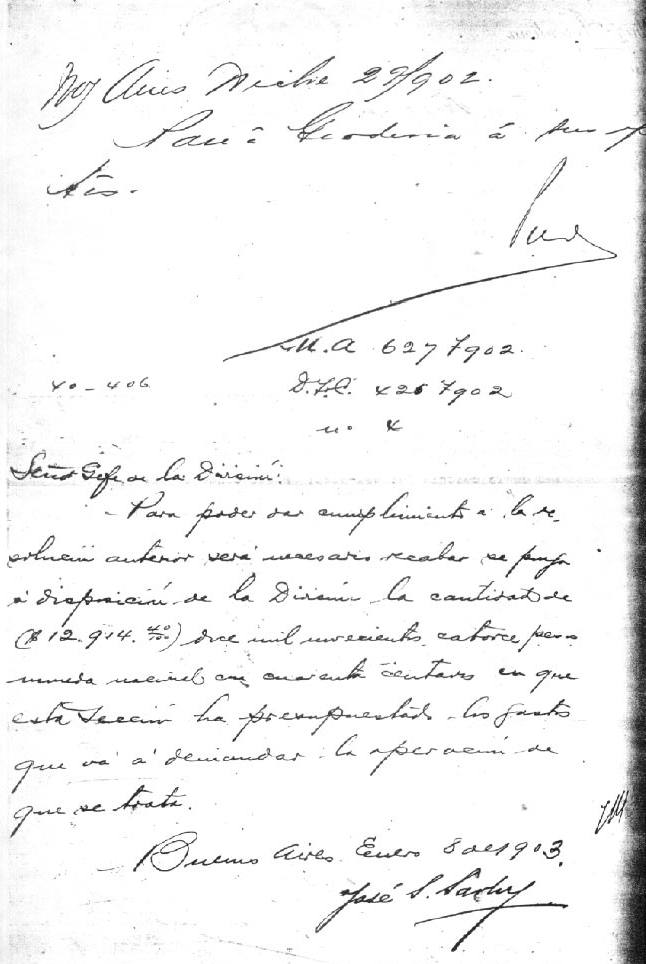 Bs Aires Dicbre 29/902.
Pase á Geodesia á sus
tos.
M. A 627 7902.
40-406
D.T.C. 425 7902
no 4
Señor Gefe de la División:
Para poder dar cumplimiento a la re-
solucion anterior será necesario recabar se ponga
a disposición de la División la cantidad de
($ 12.914.40/00) doce mil novecientos catorce pesos
moneda nacional con cuarenta centavos en que
esta Sección ha presupuestado los gastos
que vá á demandar la operación de
que se trata.
Buenos Aires Enero 8 de 1903.
José S.